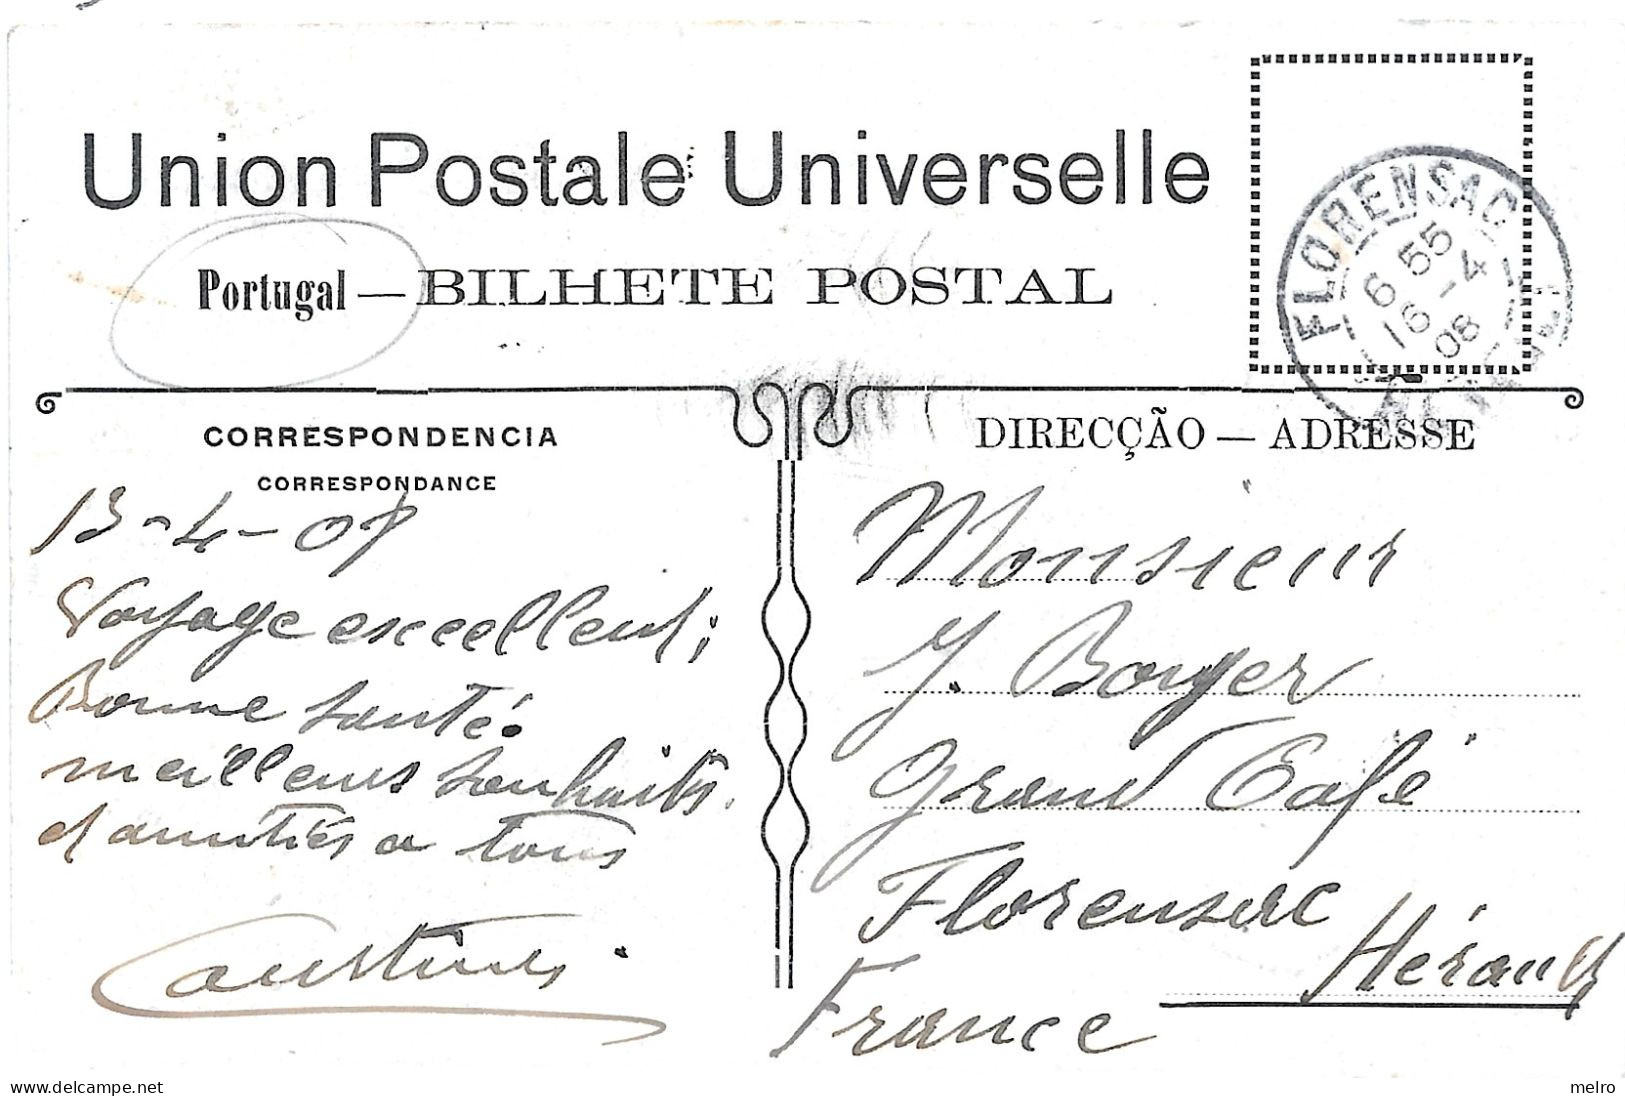 Union Postale Universelle
Portugal — BILHETE POSTAL
FLORENSAC
6 55
16 - 4
08
CORRESPONDENCIA
CORRESPONDANCE
DIRECÇÃO — ADRESSE
13-4-08
Voyage excellent;
Bonne santé.
meilleurs souhaits.
et amitiés a tous
Monsieur
J. Boyer
Grand Café
Florensac
Hérault
France
www.delcampe.net
melro